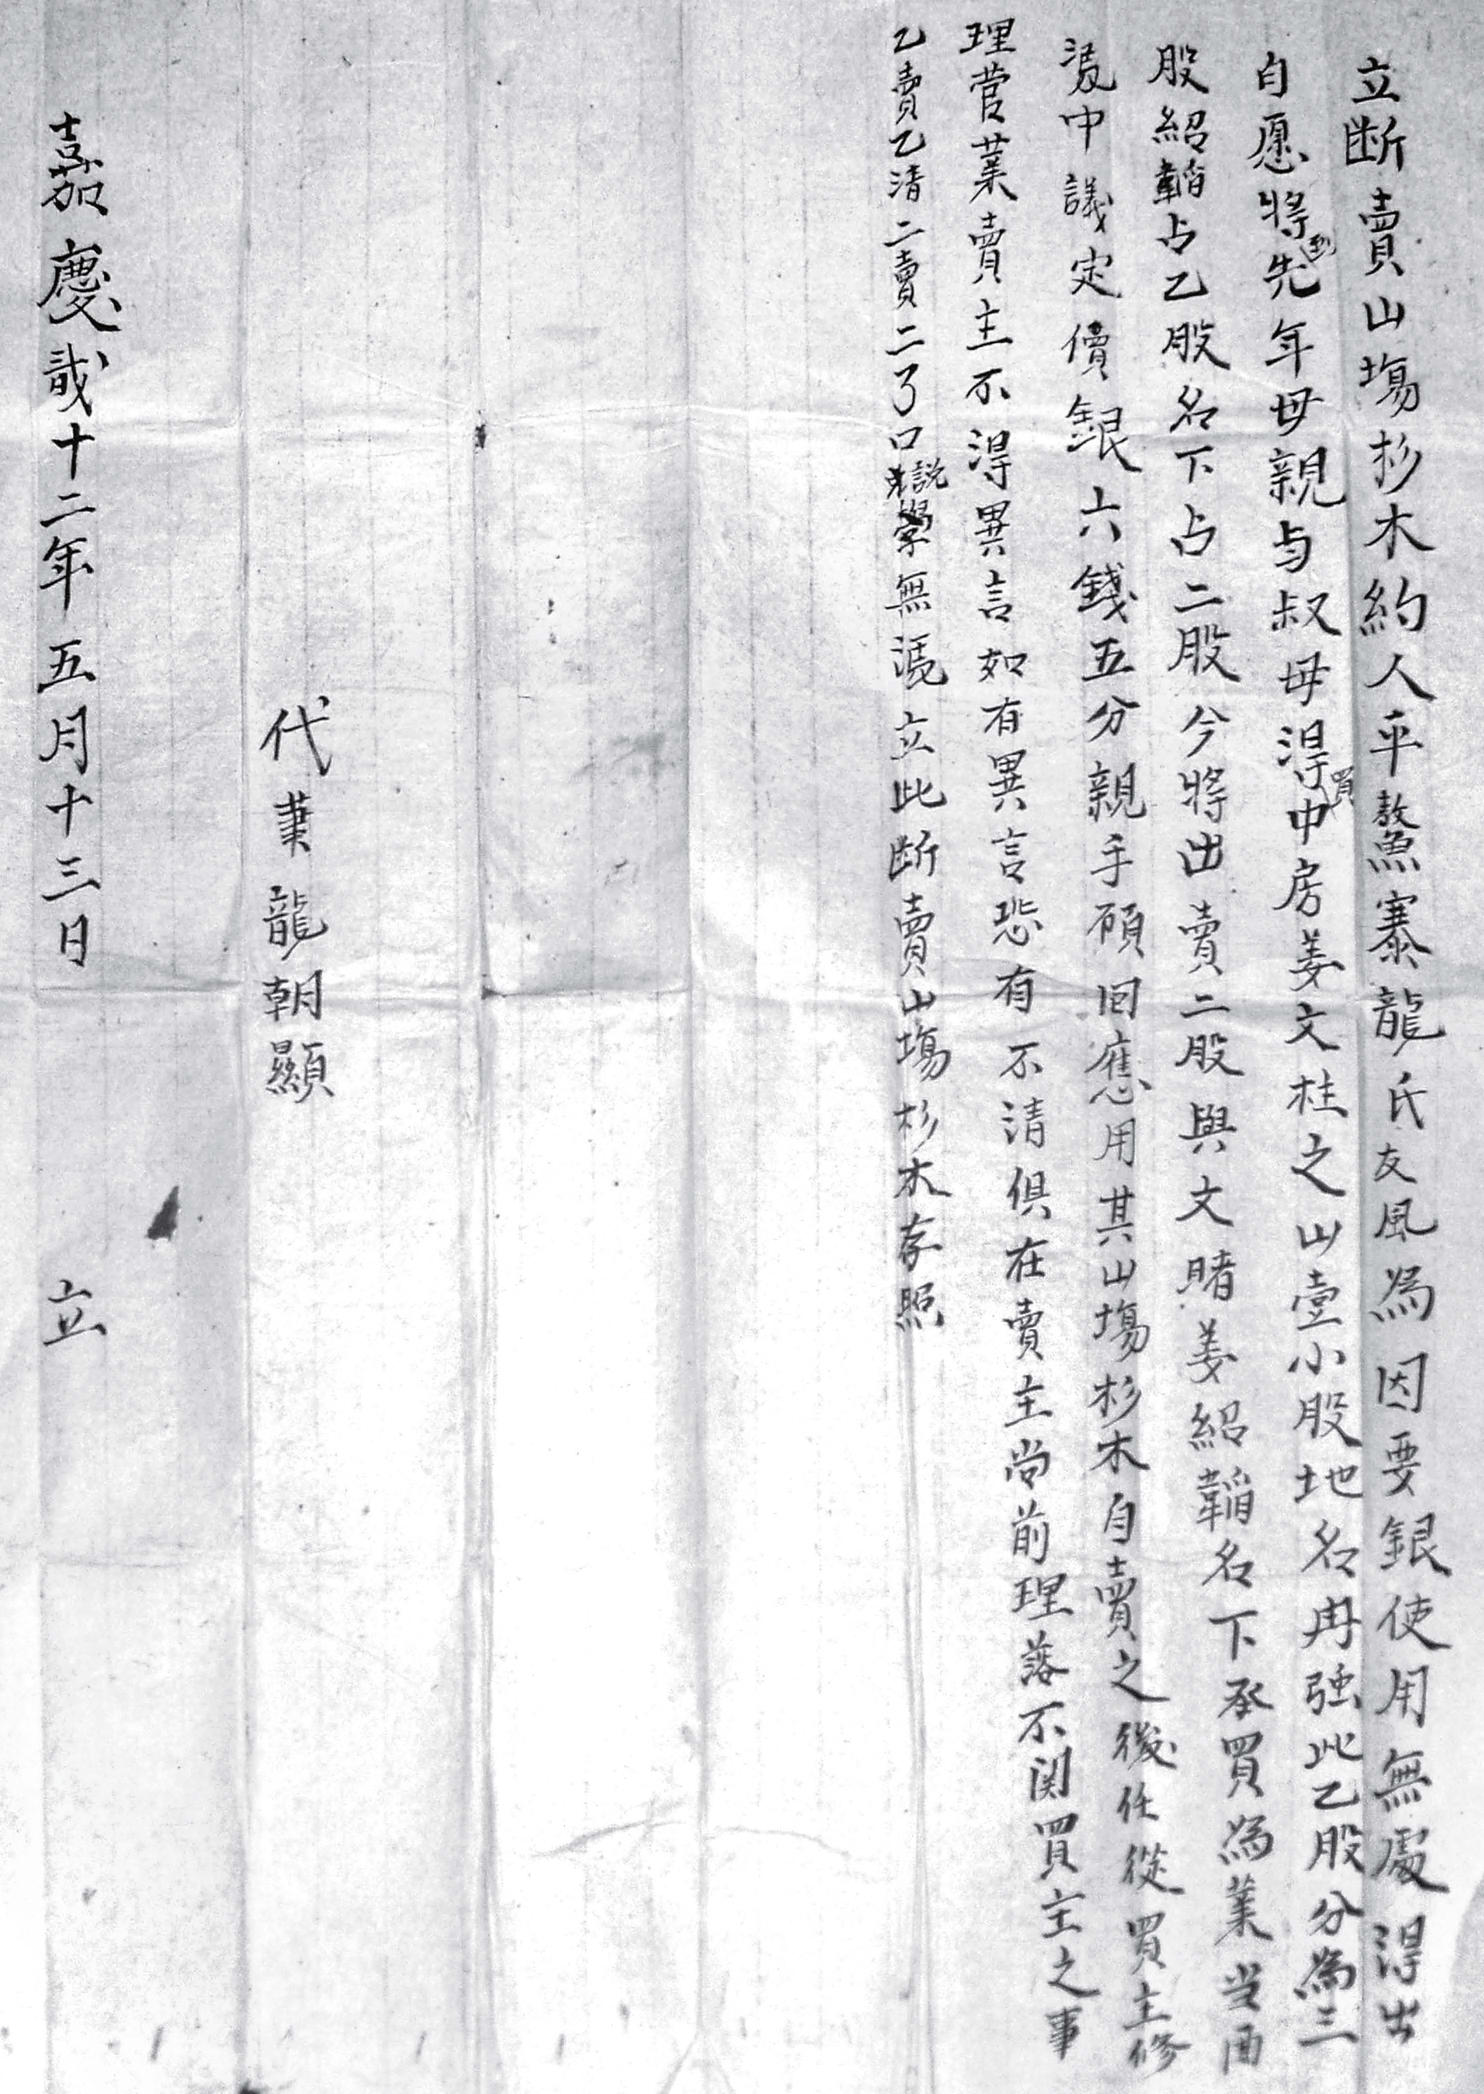 立断賣山塲杉木約人平鰲寨龍氏友風爲因要銀使用無處淂出
自愿將到先年毋親与叔毋淂買中房姜文柱之山壹小股地名冉强此乙股分為三
股紹韜占乙股名下占二股今將出賣二股與文賭姜紹韜名下承買爲業当面
凴中議定價銀六錢五分親手領回應用其山塲杉木自賣之後任從買主修
理菅業賣主不淂異言如有異言恐有不清俱在賣主尚前理落不関買主之事
乙賣乙清二賣二了口說無凴立此断賣山塲杉木存照
代筆龍朝顯
嘉慶貳十二年五月十三日 立